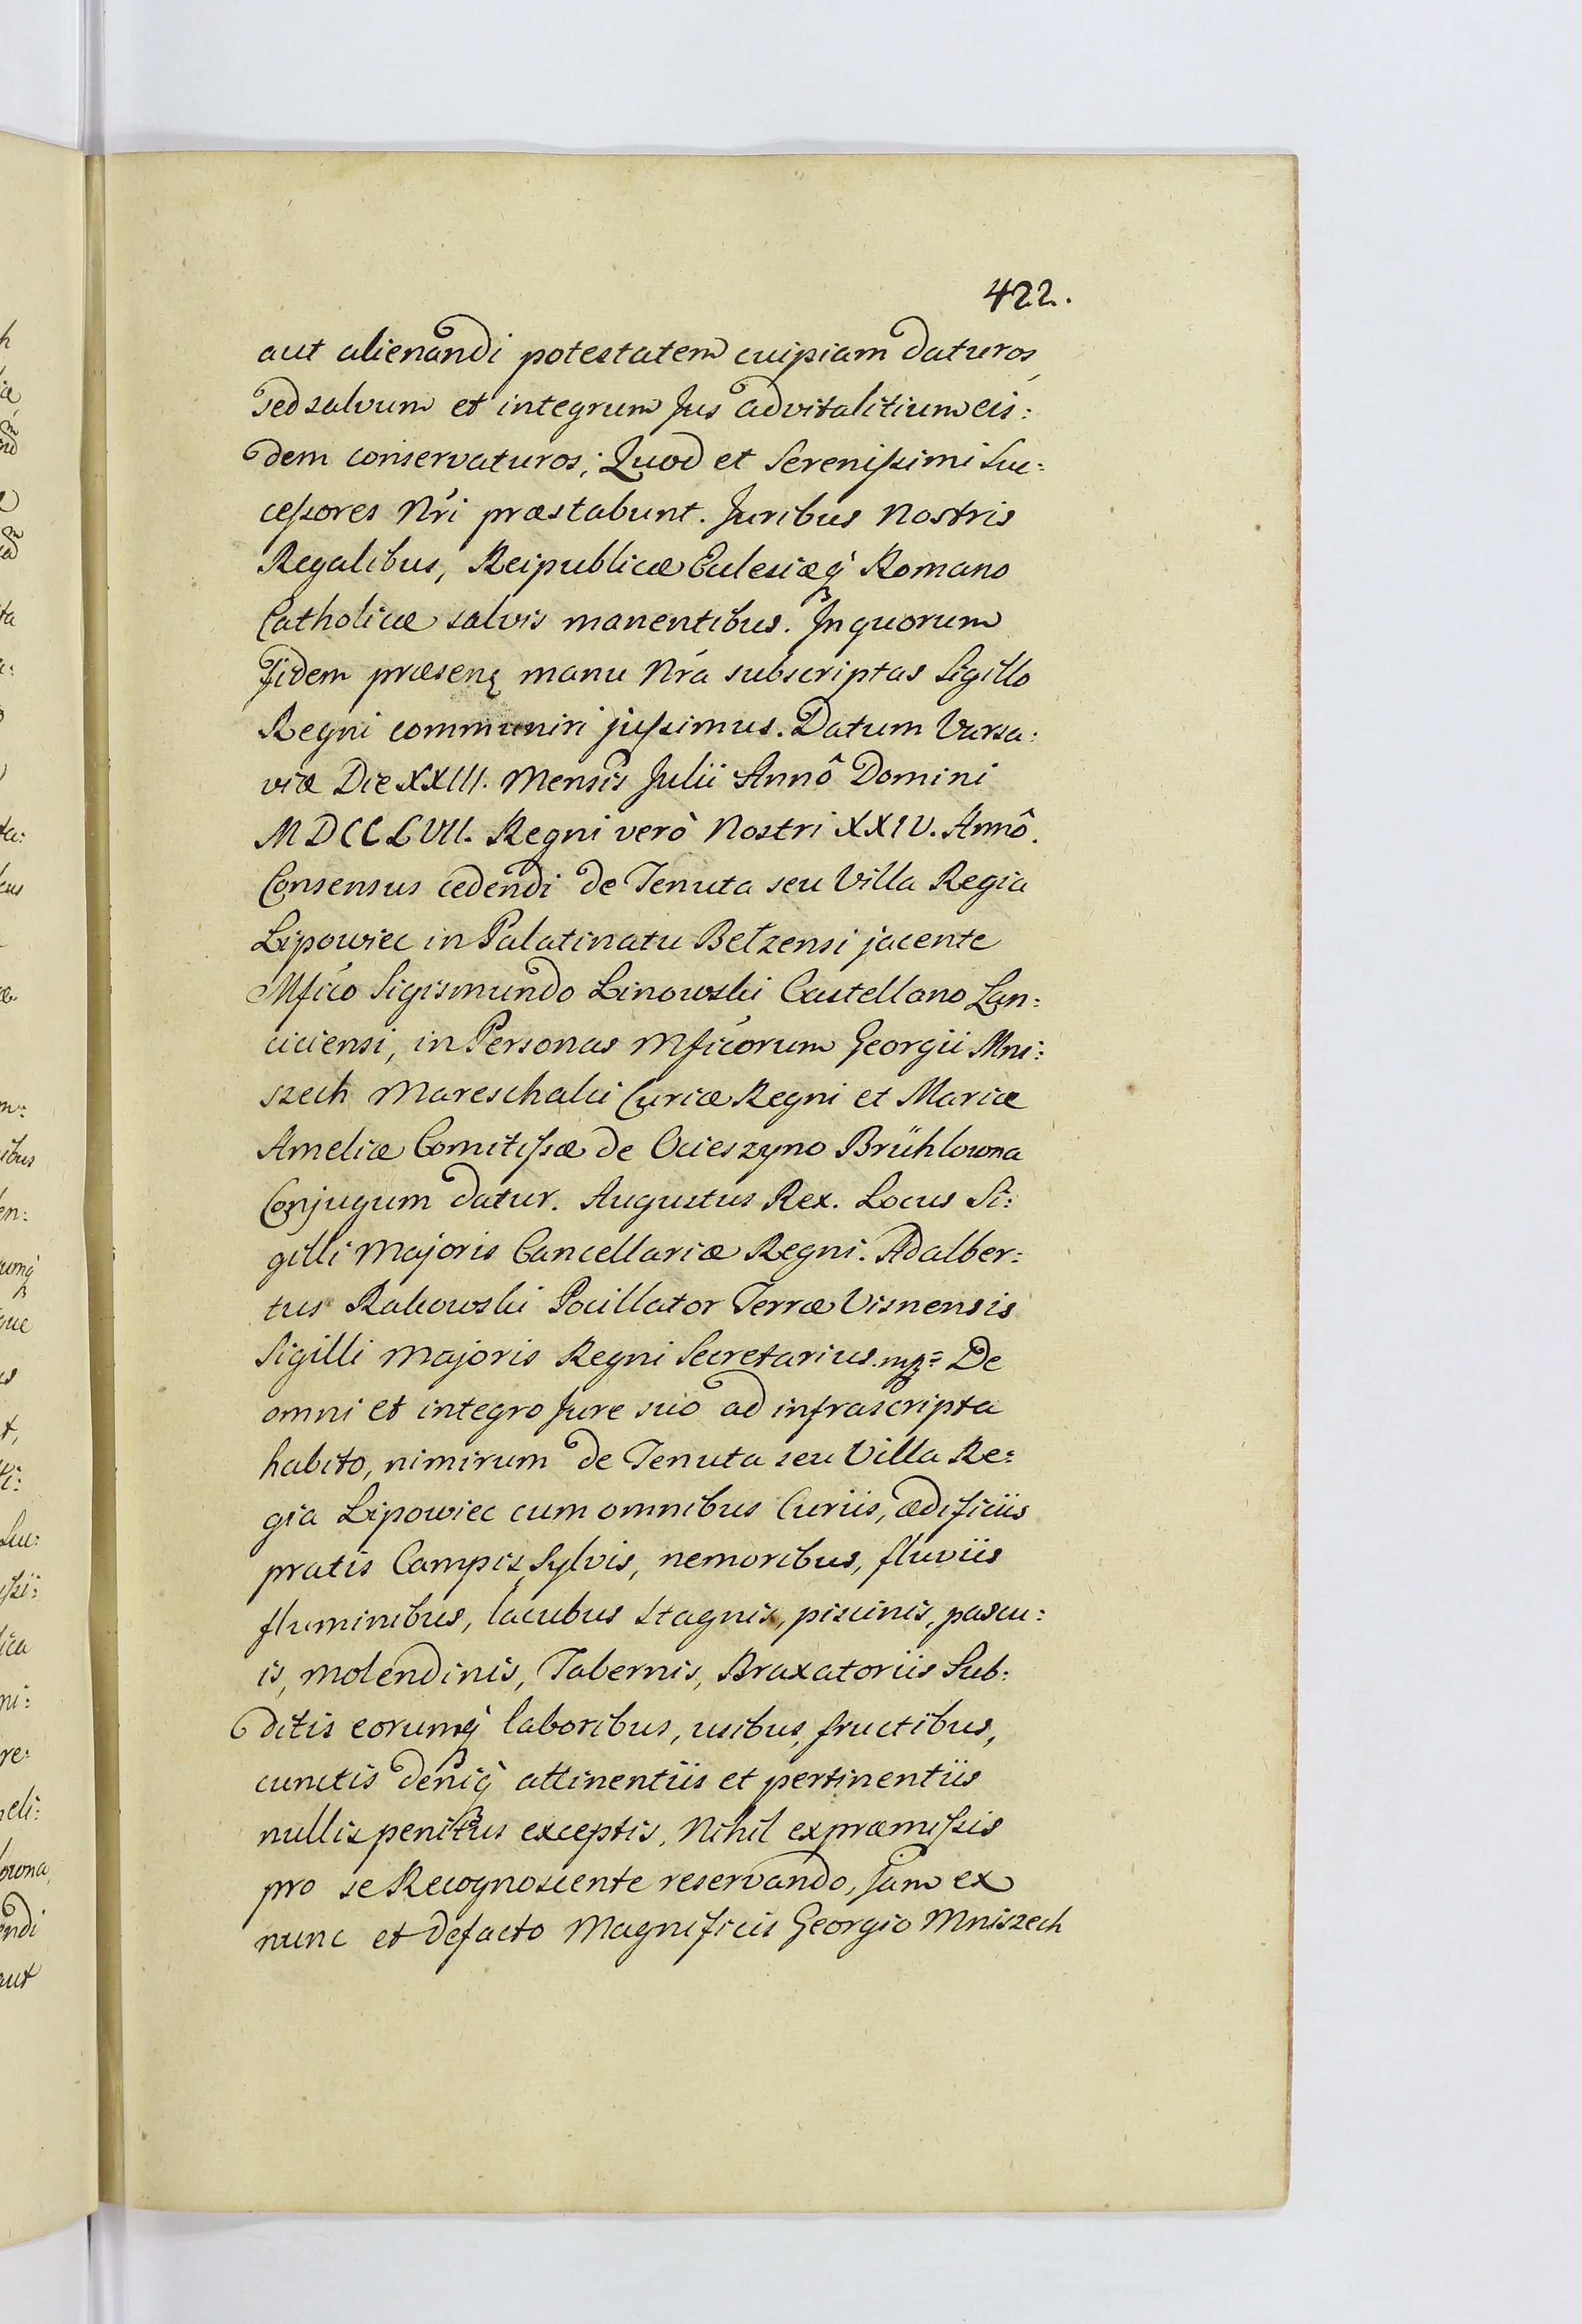 422.
aut alienandi potestatem cuipiam daturos,
sed salvum et integrum Jus advitalitium eis:
dem conservaturos; Quod et Serenissimi Suc:
cessores Nri præstabunt. Juribus Nostris
Regalibus, Reipublicæ Eclesiæq̀ Romano
Catholicæ salvis manentibus. In quorum
Fidem præsenȩ manu Nrá subscriptas Sigillo
Regni communiri jussimus. Datum Varsa:
viæ Die XXIII. Mensis Julii Annô Domini
MDCCLVII. Regni verò Nostri XXIV. Annô.
Consensus cedendi de Tenuta seu Villa Regia
Lipowiec in Palatinatu Betzensi jacente
Mfico Sigismundo Linowski Castellano Lan:
ciciensi, in Personas Mficorum Georgii Mni:
szech Mareschalci Curiæ Regni et Mariæ
Ameliæ Comitissæ de Ocieszyno Brühlowna
Conjugum datur. Augustus Rex. Locus Si:
gilli Majoris Cancellariæ Regni. Adalber:
tus Rakowski Pocillator Terræ Visnensis
Sigilli Majoris Regni Secretarius. mp= De
omni et integro Jure suo ad infrascripta
habito, nimirum de Tenuta seu Villa Re=
gia Lipowiec cum omnibus Curiis, ædificiis
pratis Campis, Sylvis, nemoribus, fluviis
fluminibus, lacubus stagnis, piscinis, pascu:
is, molendinis, Tabernis, Braxatoriis Sub:
ditis eorumq̀ laboribus, usibus, fructibus,
cunctis deniq̀ attinentiis et pertinentiis
nullis penitus exceptis, Nihil ex præmissis
pro se Recognoscente reservando, Jam ex
nunc et defacto Magnificis Georgio Mniszech